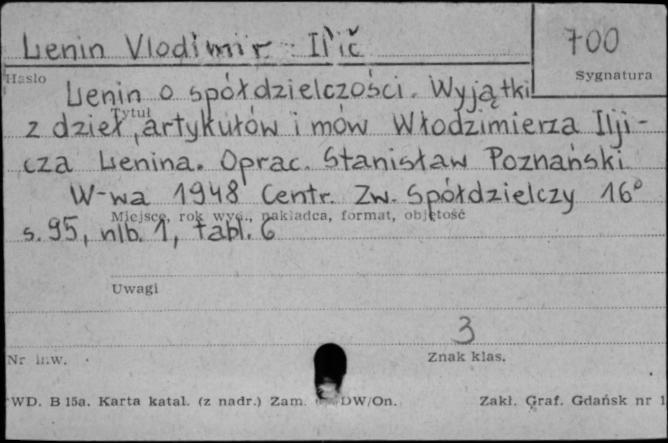 Lenin Vlodimir Il'ič
700
Hasło
Sygnatura
Lenin o spółdzielczości. Wyjątki
Tytuł
z dzieł, artykułów i mów Włodzimierza Ilji-
cza Lenina. Oprac. Stanisław Poznański
W-wa 1948 Centr. Zw. Spółdzielczy 16°
Miejsce, rok wyd., nakładca, format, objętość
s. 95, nlb. 1, tabl. 6
Uwagi
3
Nr inw.
Znak klas.
WD. B 15a. Karta katal. (z nadr.) Zam. DW/On.
Zakł. Graf. Gdańsk nr 1